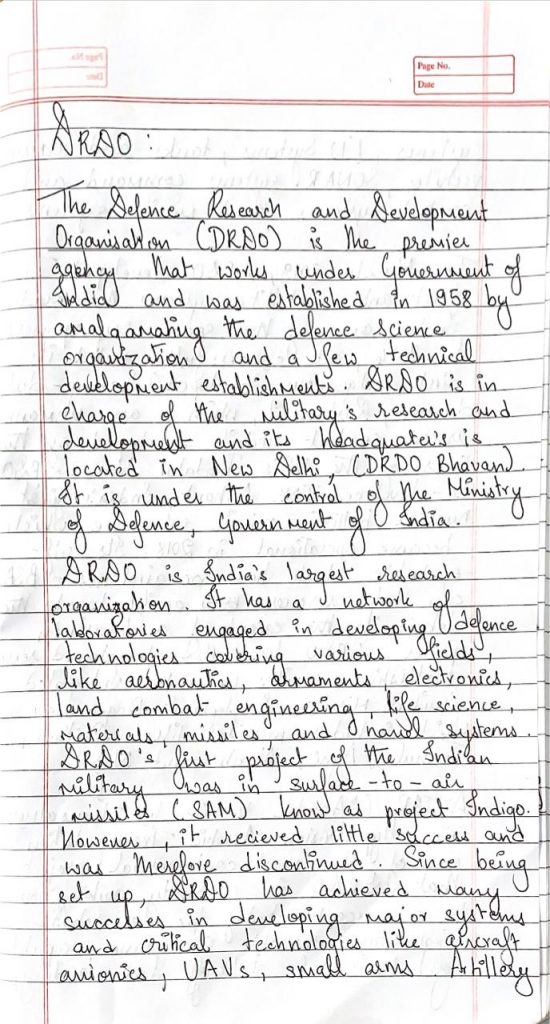 Page No.
Date
DRDO :
The Defence Research and Development
Organisation (DRDO) is the premier
agency that works under Government of
India and was established in 1958 by
amalgamating the defence science
organization and a few technical
development establishments. DRDO is in
charge of the military's research and
development and its headquater's is
located in New Delhi, (DRDO Bhavan).
It is under the control of the Ministry
of Defence, Government of India.
DRDO is India's largest research
organization. It has a network of
laboratories engaged in developing defence
technologies covering various fields,
like aeronautics, armaments, electronics,
land combat engineering, life science,
materials, missiles, and naval systems.
DRDO's first project of the Indian
military was in surface-to-air
missiles (SAM) know as project Indigo.
However, it recieved little success and
was therefore discontinued. Since being
set up, DRDO has achieved many
successes in developing major systems
and critical technologies like aircraft
avionics, UAVs, small arms. Artillery